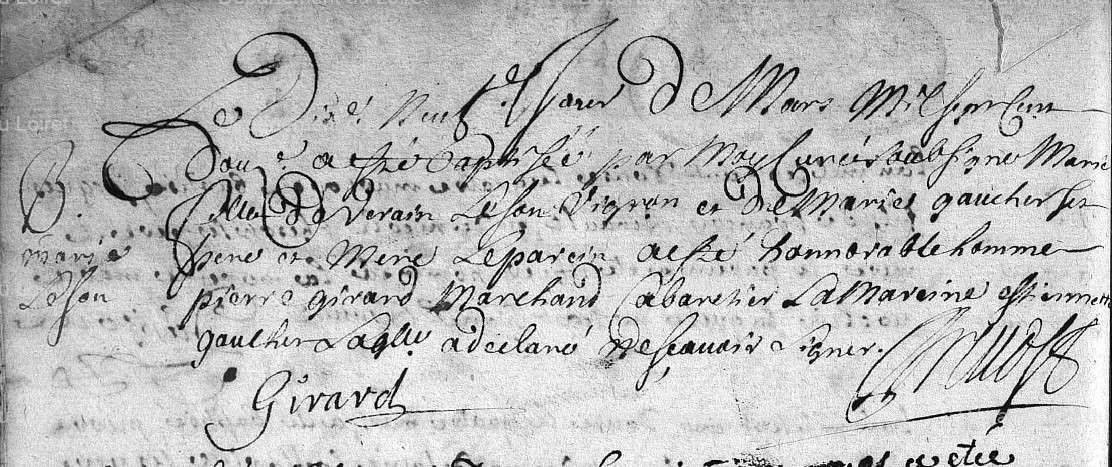 Le Dixe Neufe Jour De Mars Mil sept Cent
Douze a esté Baptisée par Moy Curé soubsigné Marie
B.
fille De Verain Leson Vigron et De Marie gaucher ses
marie
pere et Mere Le parein a esté honnorable homme
Leson
pierre girard Marchand Cabaretier La Mareine estiennette
gaucher Laqlle a declaré Ne scavoir signer.
Girard